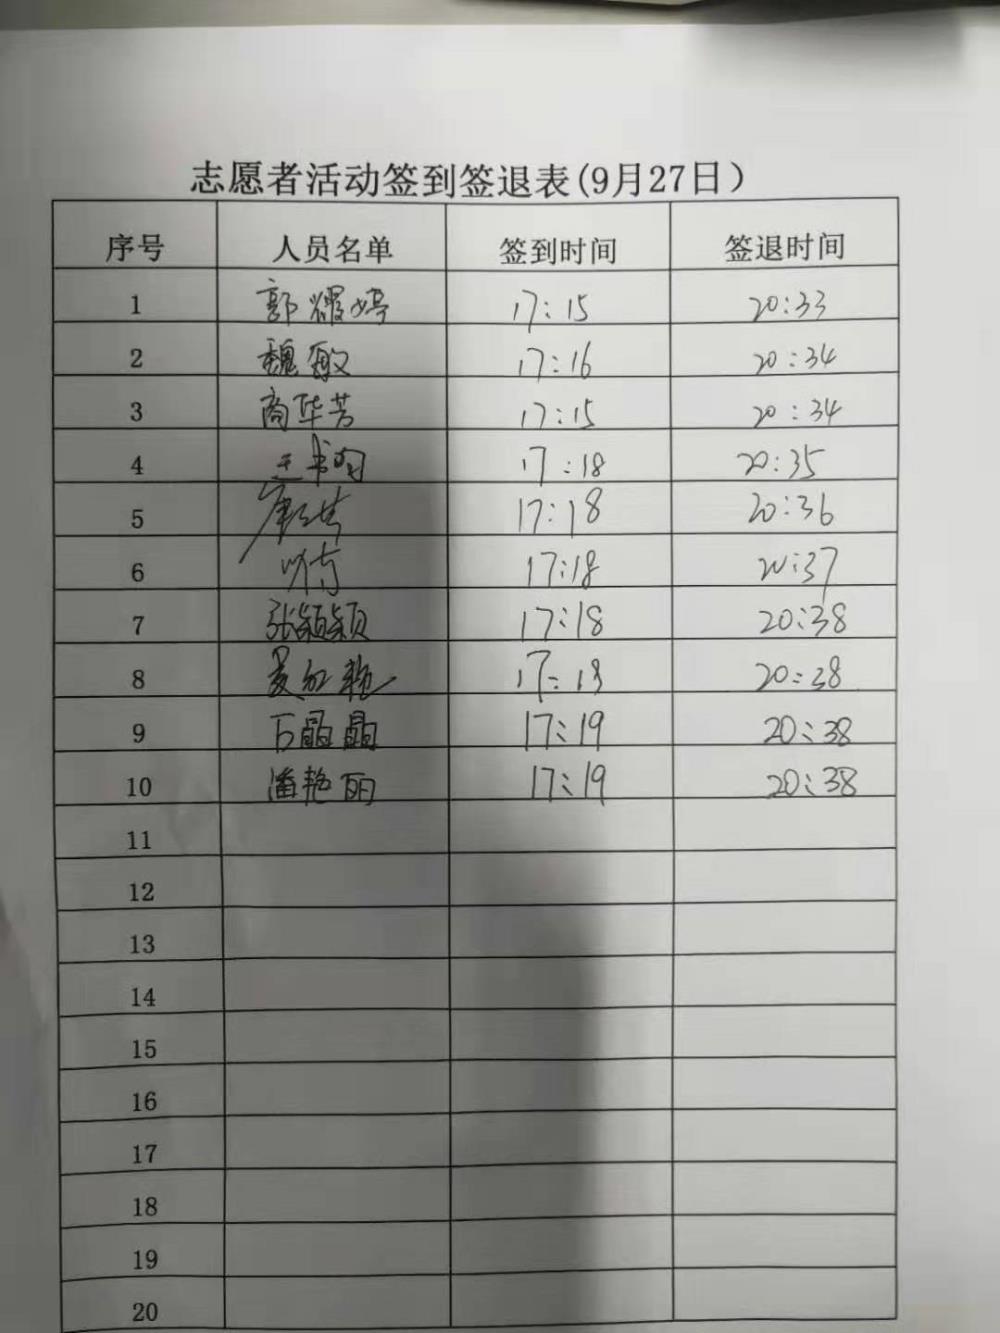 志愿者活动签到签退表(9月27日)
序号 人员名单 签到时间 签退时间
1 郭耀婷 17:15 20:33
2 魏敏 17:16 20:34
3 商华芳 17:15 20:34
4 17:18 20:35
5 17:18 20:36
6 17:18 20:37
7 张颖颖 17:18 20:38
8 夏红艳 17:18 20:38
9 石晶晶 17:19 20:38
10 潘艳丽 17:19 20:38
11
12
13
14
15
16
17
18
19
20